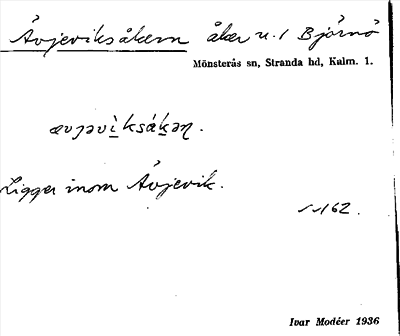 Åvjeviksåkern åker u. 1 Björnö
Mönsterås sn, Stranda hd, Kalm. 1.
ævȷəvìksákəɳ.
Ligger inom Åvjevik.
162.
Ivar Modéer 1936